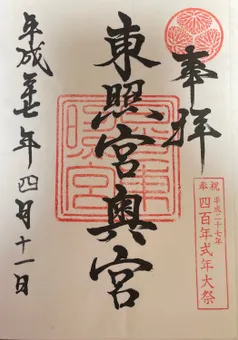 奉拝
東照宮奥宮
平成廿七年四月十一日
奉祝 平成二十七年
四百年式年大祭